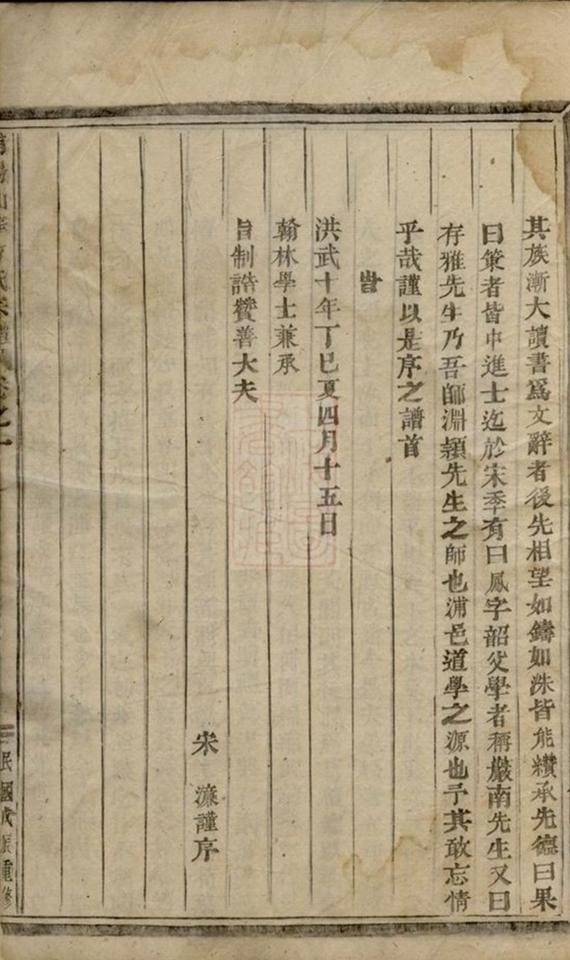 其族漸大讀書爲文辭者後先相望如鑄如洙皆能纘承先德曰果
曰策者皆中進士迄於宋季有曰鳳字韶父學者稱嚴南先生又曰
存雅先生乃吾師淵穎先生之師也浦邑道學之源也予其敢忘情
乎哉謹以是序之譜首
旹
洪武十年丁巳夏四月十五日
翰林學士兼承
旨制誥贊善大夫
宋濂謹序
方氏宗譜卷之一
民國戊辰重修